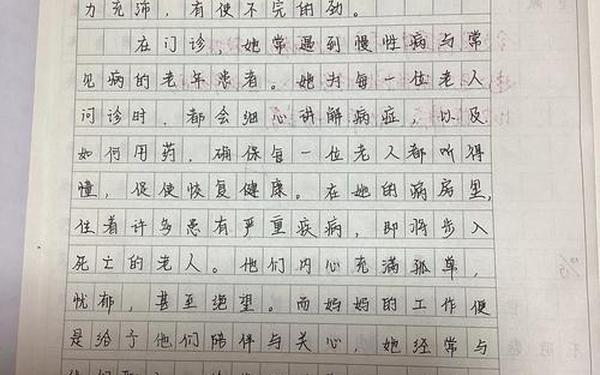 力充沛，有使不完的劲。
在门诊，她常遇到慢性病与常
见病的老年患者。她为每一位老人
问诊时，都会细心讲解病症，以及
如何用药，确保每一位老人都听得
懂，促使恢复健康。在她的病房里，
住着许多患有严重疾病，即将步入
死亡的老人。他们内心充满孤单，
忧郁，甚至绝望。而妈妈的工作便
是给予他们陪伴与关心，她经常与